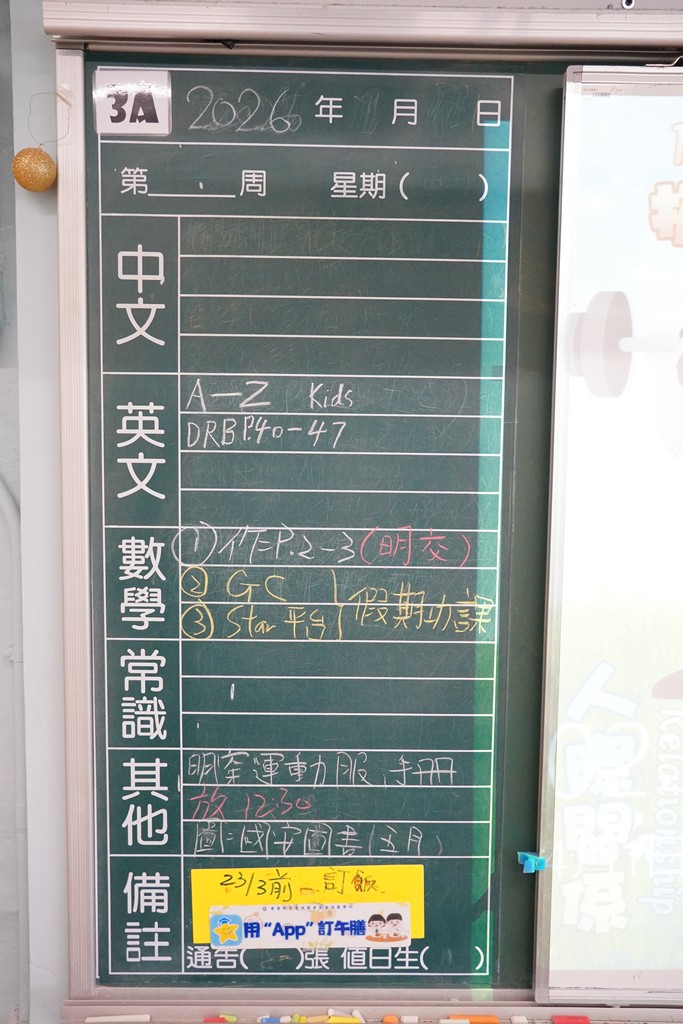 3A 2026 年 月 日
第 周 星期 ( )
中文
英文
A-Z Kids
DRB P.40-47
數學
① 作二P.2-3 (明交)
② GC
③ Star 平台
假期功課
常識
其他
明穿運動服、手冊
放 12:30
圖:國安圖書(五月)
備註
23/3前 訂飯
用“App”訂午膳
通告( )張 值日生( )
人際關係